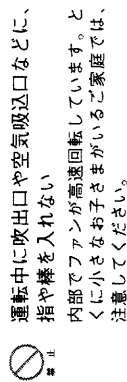 禁止
運転中に吹出口や空気吸込口などに、
指や棒を入れない
内部でファンが高速回転しています。と
くに小さなお子さまがいるご家庭では、
注意してください。